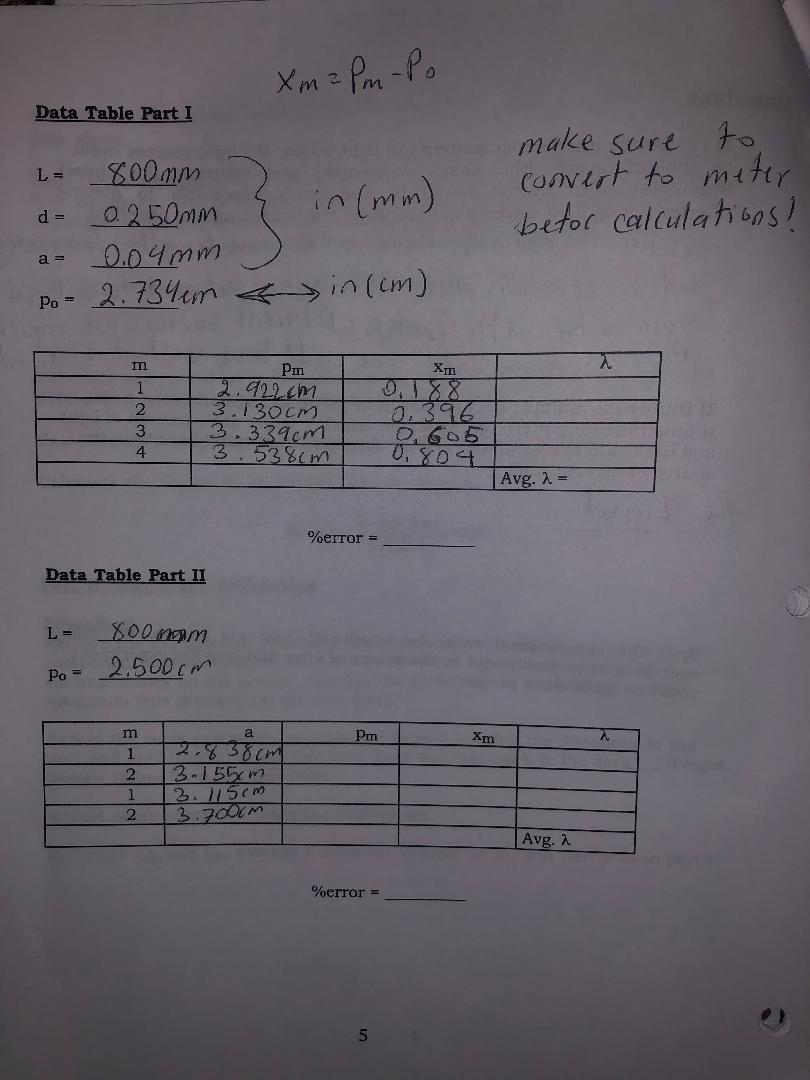 Xm = Pm - Po
Data Table Part I
make sure to
convert to meter
befor calculations!
L = 800mm
d = 0.250mm
a = 0.04mm
in (mm)
p₀ = 2.734cm ↔ in (cm)
m pm xm λ
1 2.922cm 0.188
2 3.130cm 0.396
3 3.339cm 0.605
4 3.538cm 0.804
Avg. λ =
%error =
Data Table Part II
L = 800mm
p₀ = 2.500cm
m a pm xm λ
1 2.838cm
2 3.155cm
1 3.115cm
2 3.700cm
Avg. λ
%error =
5